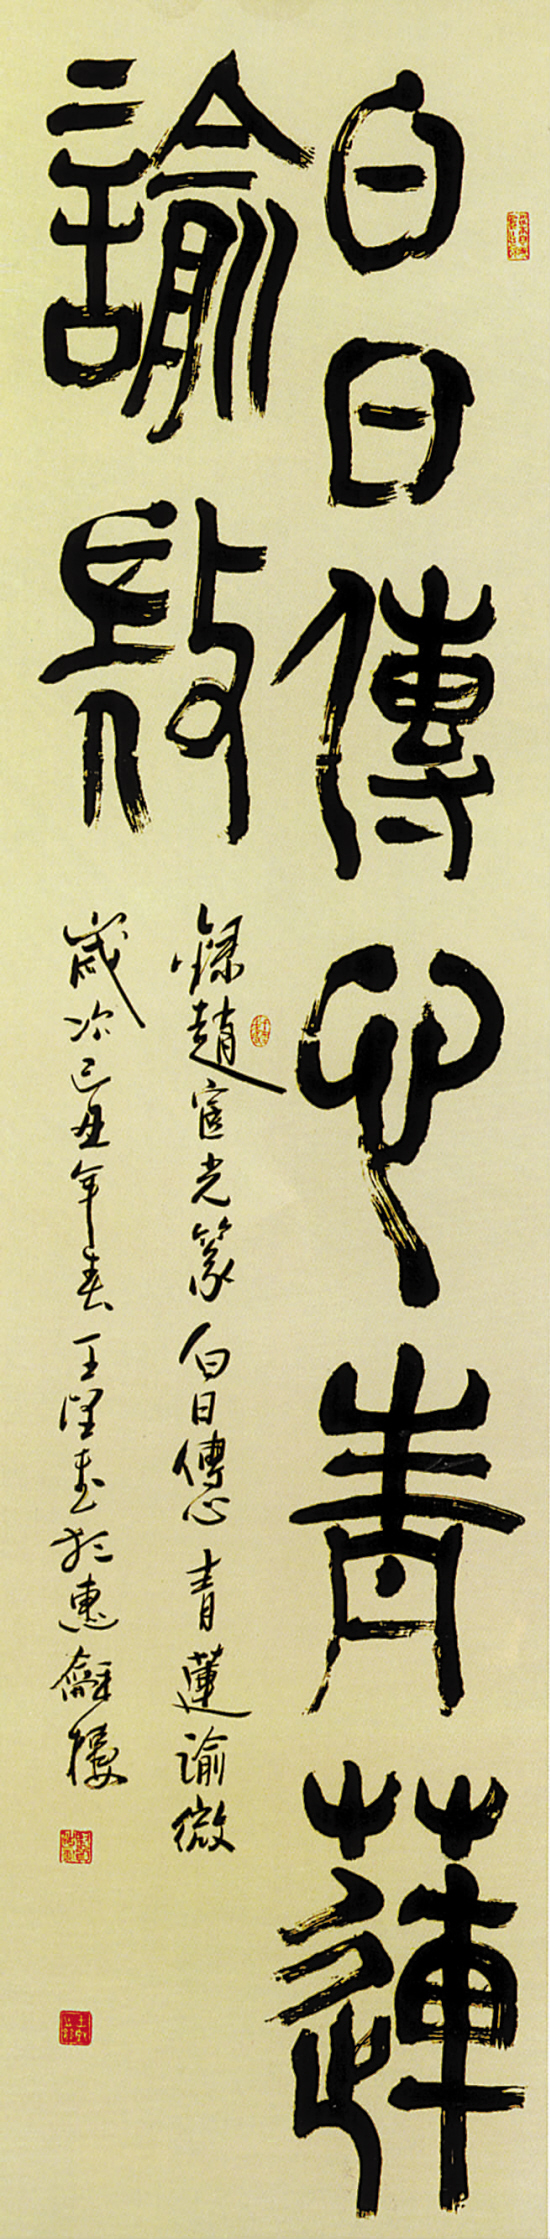 白日傳心青蓮
諭㪫
錄趙宧光篆白日傳心青蓮諭微
歲次己丑年春王望書於惠龢樓